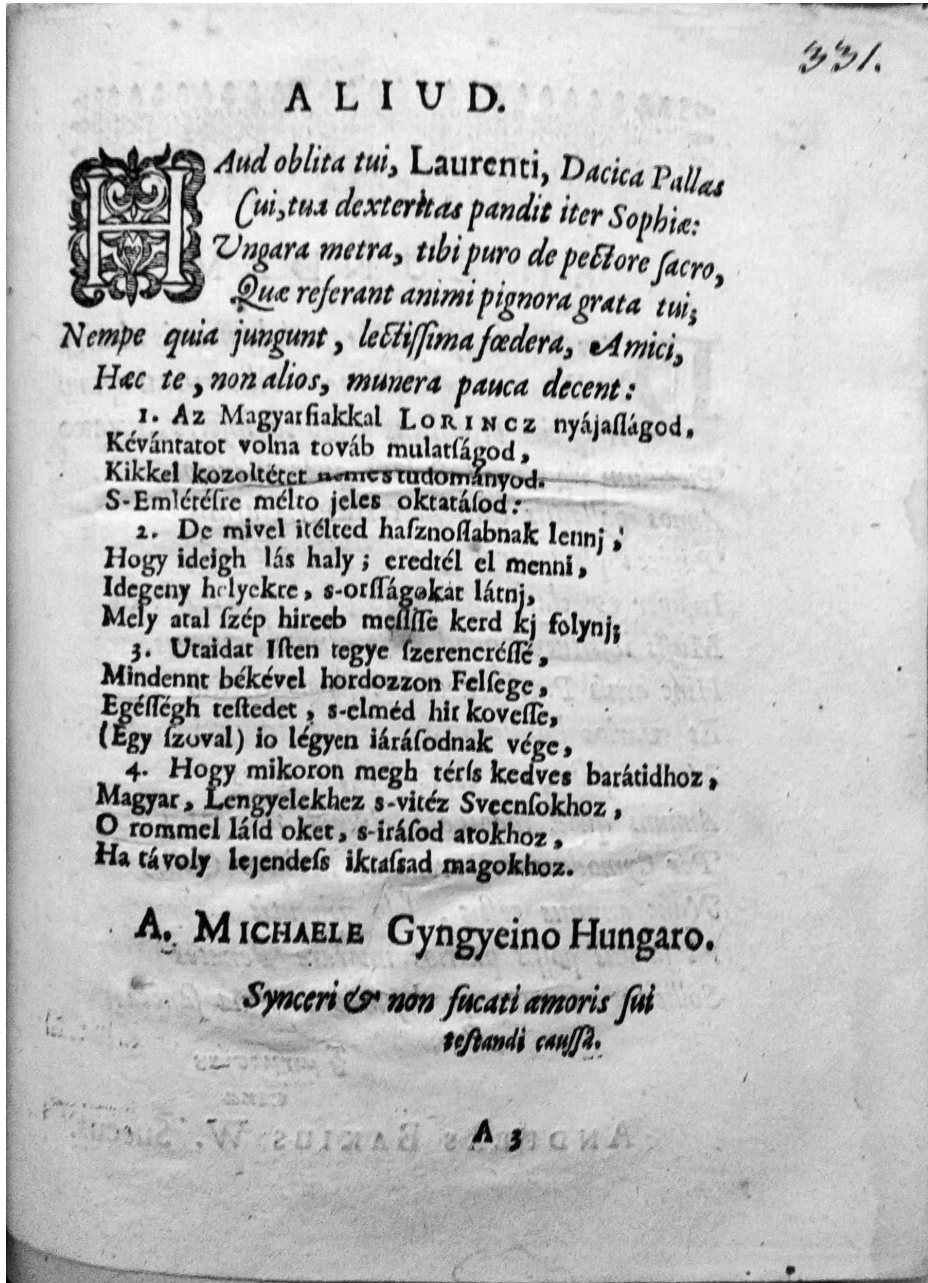 331.
ALIUD.
HAud oblita tui, Laurenti, Dacica Pallas
Cui, tua dexteritas pandit iter Sophiæ:
Ungara metra, tibi puro de pectore sacro,
Quæ referant animi pignora grata tui;
Nempe quia jungunt, lectiſſima fœdera, Amici,
Hæc te, non alios, munera pauca decent:
1. Az Magyarfiakkal LORINCZ nyájaſságod,
Kévántatot volna továb mulatſágod,
Kikkel kozoltétet nemes tudományod.
S-Emlétéſre mélto jeles oktatáſod:
2. De mivel itélted haſznoſſabnak lennj,
Hogy ideigh lás haly; eredtél el menni,
Idegeny helyekre, s-orſſágokat látnj,
Mely atal ſzép hireeb meſſiſſe kerd kj folynj;
3. Utaidat Iſten tegye ſzerencréſſé,
Mindennt békével hordozzon Felſege,
Egéſſégh teſtedet, s-elméd hit koveſſe,
(Egy ſzoval) io légyen iáráſodnak vége,
4. Hogy mikoron megh téríſ kedves barátidhoz,
Magyar, Lengyelekhez s-vitéz Sveenſokhoz,
O rommel láſd oket, s-iráſod atokhoz,
Ha távoly lejendeſs iktaſsad magokhoz.
A. MICHAELE Gyngyeino Hungaro.
Synceri & non fucati amoris ſui
teſtandi cauſſâ.
A 3